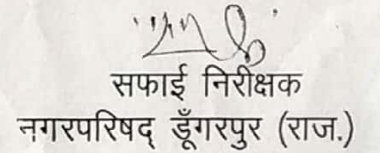 सफाई निरीक्षक
नगरपरिषद् डूँगरपुर (राज.)